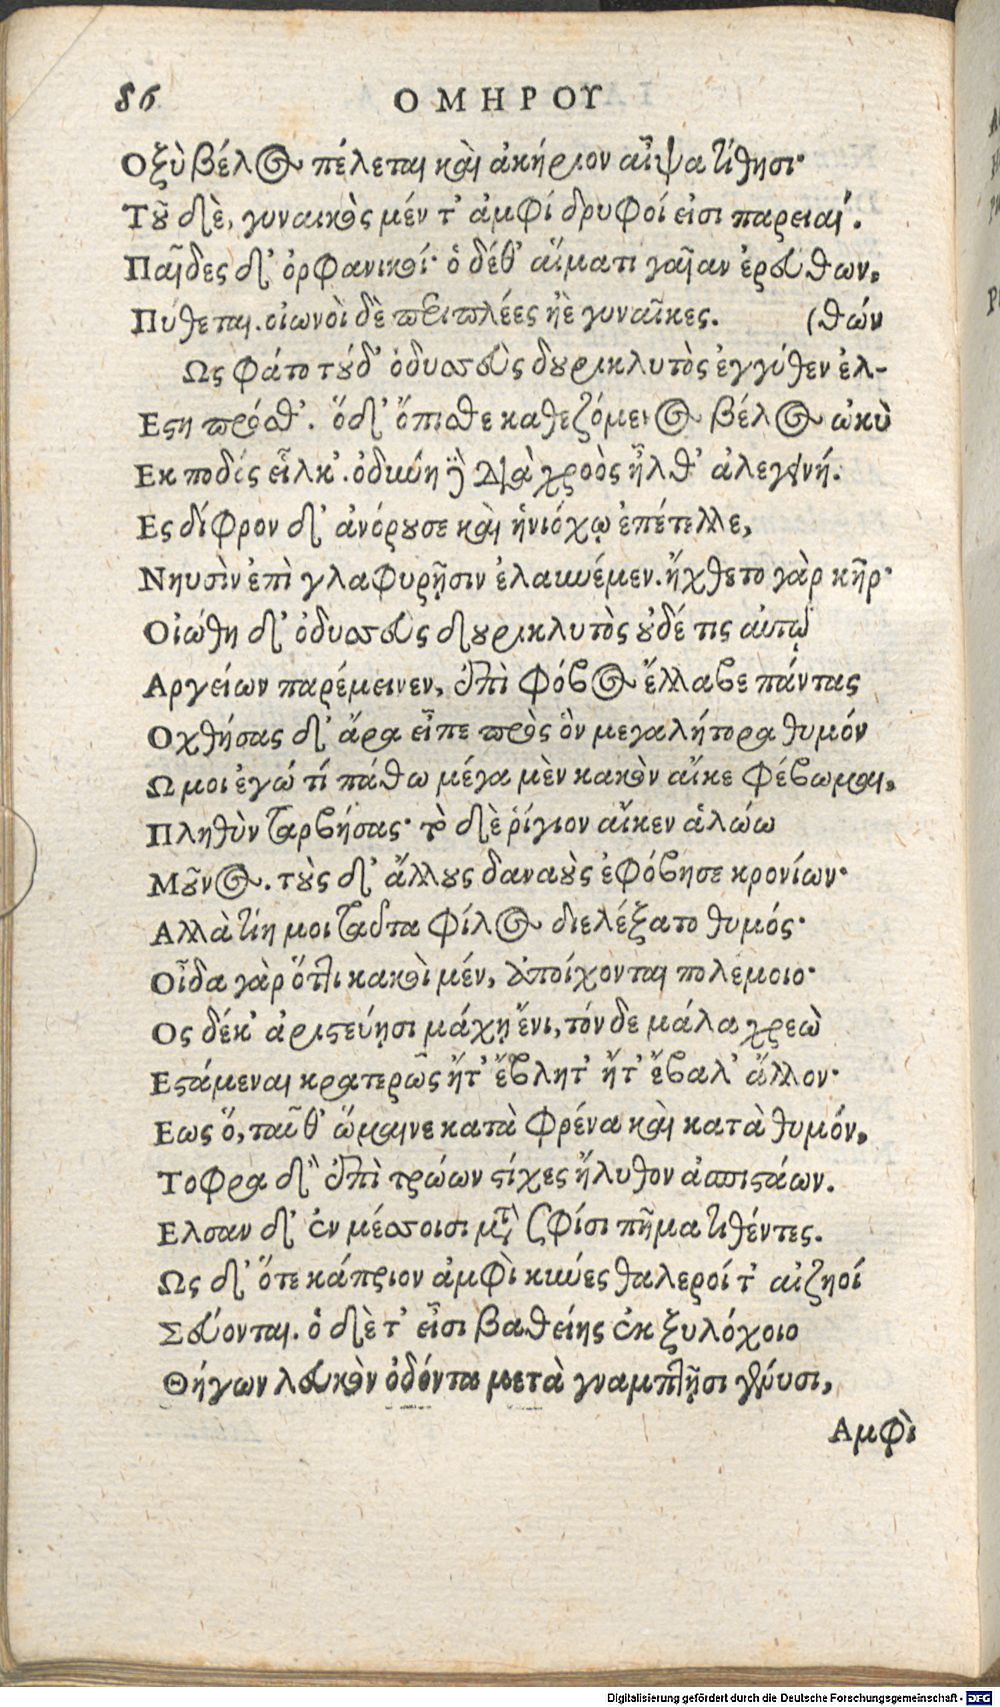 86 ΟΜΗΡΟΥ
Οξὺ βέλος πέλεται καὶ ἀκήριον αἶψα τίθησι·
Τοῦ δὲ, γυναικὸς μέν τ' ἀμφίδρυφοί εἰσι παρειαί.
Παῖδες δ' ὀρφανικοί· ὁ δέθ' αἵματι γαῖαν ἐρεύθων,
Πύθεται. οἰωνοὶ δὲ περιπλέες ἠὲ γυναῖκες. (θών
Ως φάτο τούδ' ὀδυσσεὺς δουρικλυτὸς ἐγγύθεν ἐλ-
Εστη πρόσθ'. ὅδ' ὄπισθε καθεζόμενος βέλος ὠκὺ
Εκ ποδὸς εἷλκ'. ὀδύνη δὲ διὰ χροὸς ἦλθ' ἀλεγεινή.
Ες δίφρον δ' ἀνόρουσε καὶ ἡνιόχῳ ἐπέτελλε,
Νηυσὶν ἐπὶ γλαφυρῇσιν ἐλαυνέμεν. ἤχθετο γὰρ κῆρ·
Οἰώθη δ' ὀδυσσεὺς δουρικλυτὸς οὐδέ τις αὐτῷ
Αργείων παρέμεινεν, ἐπὶ φόβος ἔλλαβε πάντας
Οχθήσας δ' ἄρα εἶπε πρὸς ὃν μεγαλήτορα θυμόν
Ω μοι ἐγώ τί πάθω μέγα μὲν κακὸν αἴκε φέβωμαι,
Πληθὺν ταρβήσας· τὸ δὲ ῥίγιον αἴκεν ἁλώω
Μοῦνος. τοὺς δ' ἄλλους δαναοὺς ἐφόβησε κρονίων·
Αλλὰ τίη μοι ταῦτα φίλος διελέξατο θυμός·
Οἶδα γὰρ ὅττι κακοὶ μέν, ἀποίχονται πολέμοιο·
Ος δέκ' ἀριστεύῃσι μάχῃ ἔνι, τόνδε μάλα χρεὼ
Εστάμεναι κρατερῶς ἤτ' ἔβλητ' ἤτ' ἔβαλ' ἄλλον·
Εως ὅ, ταῦθ' ὥμαινε κατὰ φρένα καὶ κατὰ θυμόν,
Τοφρα δ' ἐπὶ τρώων στίχες ἤλυθον ἀσπιστάων.
Ελσαν δ' ἐν μέσσοισι μετὰ σφίσι πῆμα τιθέντες.
Ως δ' ὅτε κάπριον ἀμφὶ κύνες θαλεροί τ' αἰζηοί
Σεύονται. ὁ δὲ τ' εἶσι βαθείης ἐκ ξυλόχοιο
Θήγων λευκὸν ὀδόντα μετὰ γναμπτῇσι γένυσι,
Αμφὶ
Digitalisierung gefördert durch die Deutsche Forschungsgemeinschaft - DFG